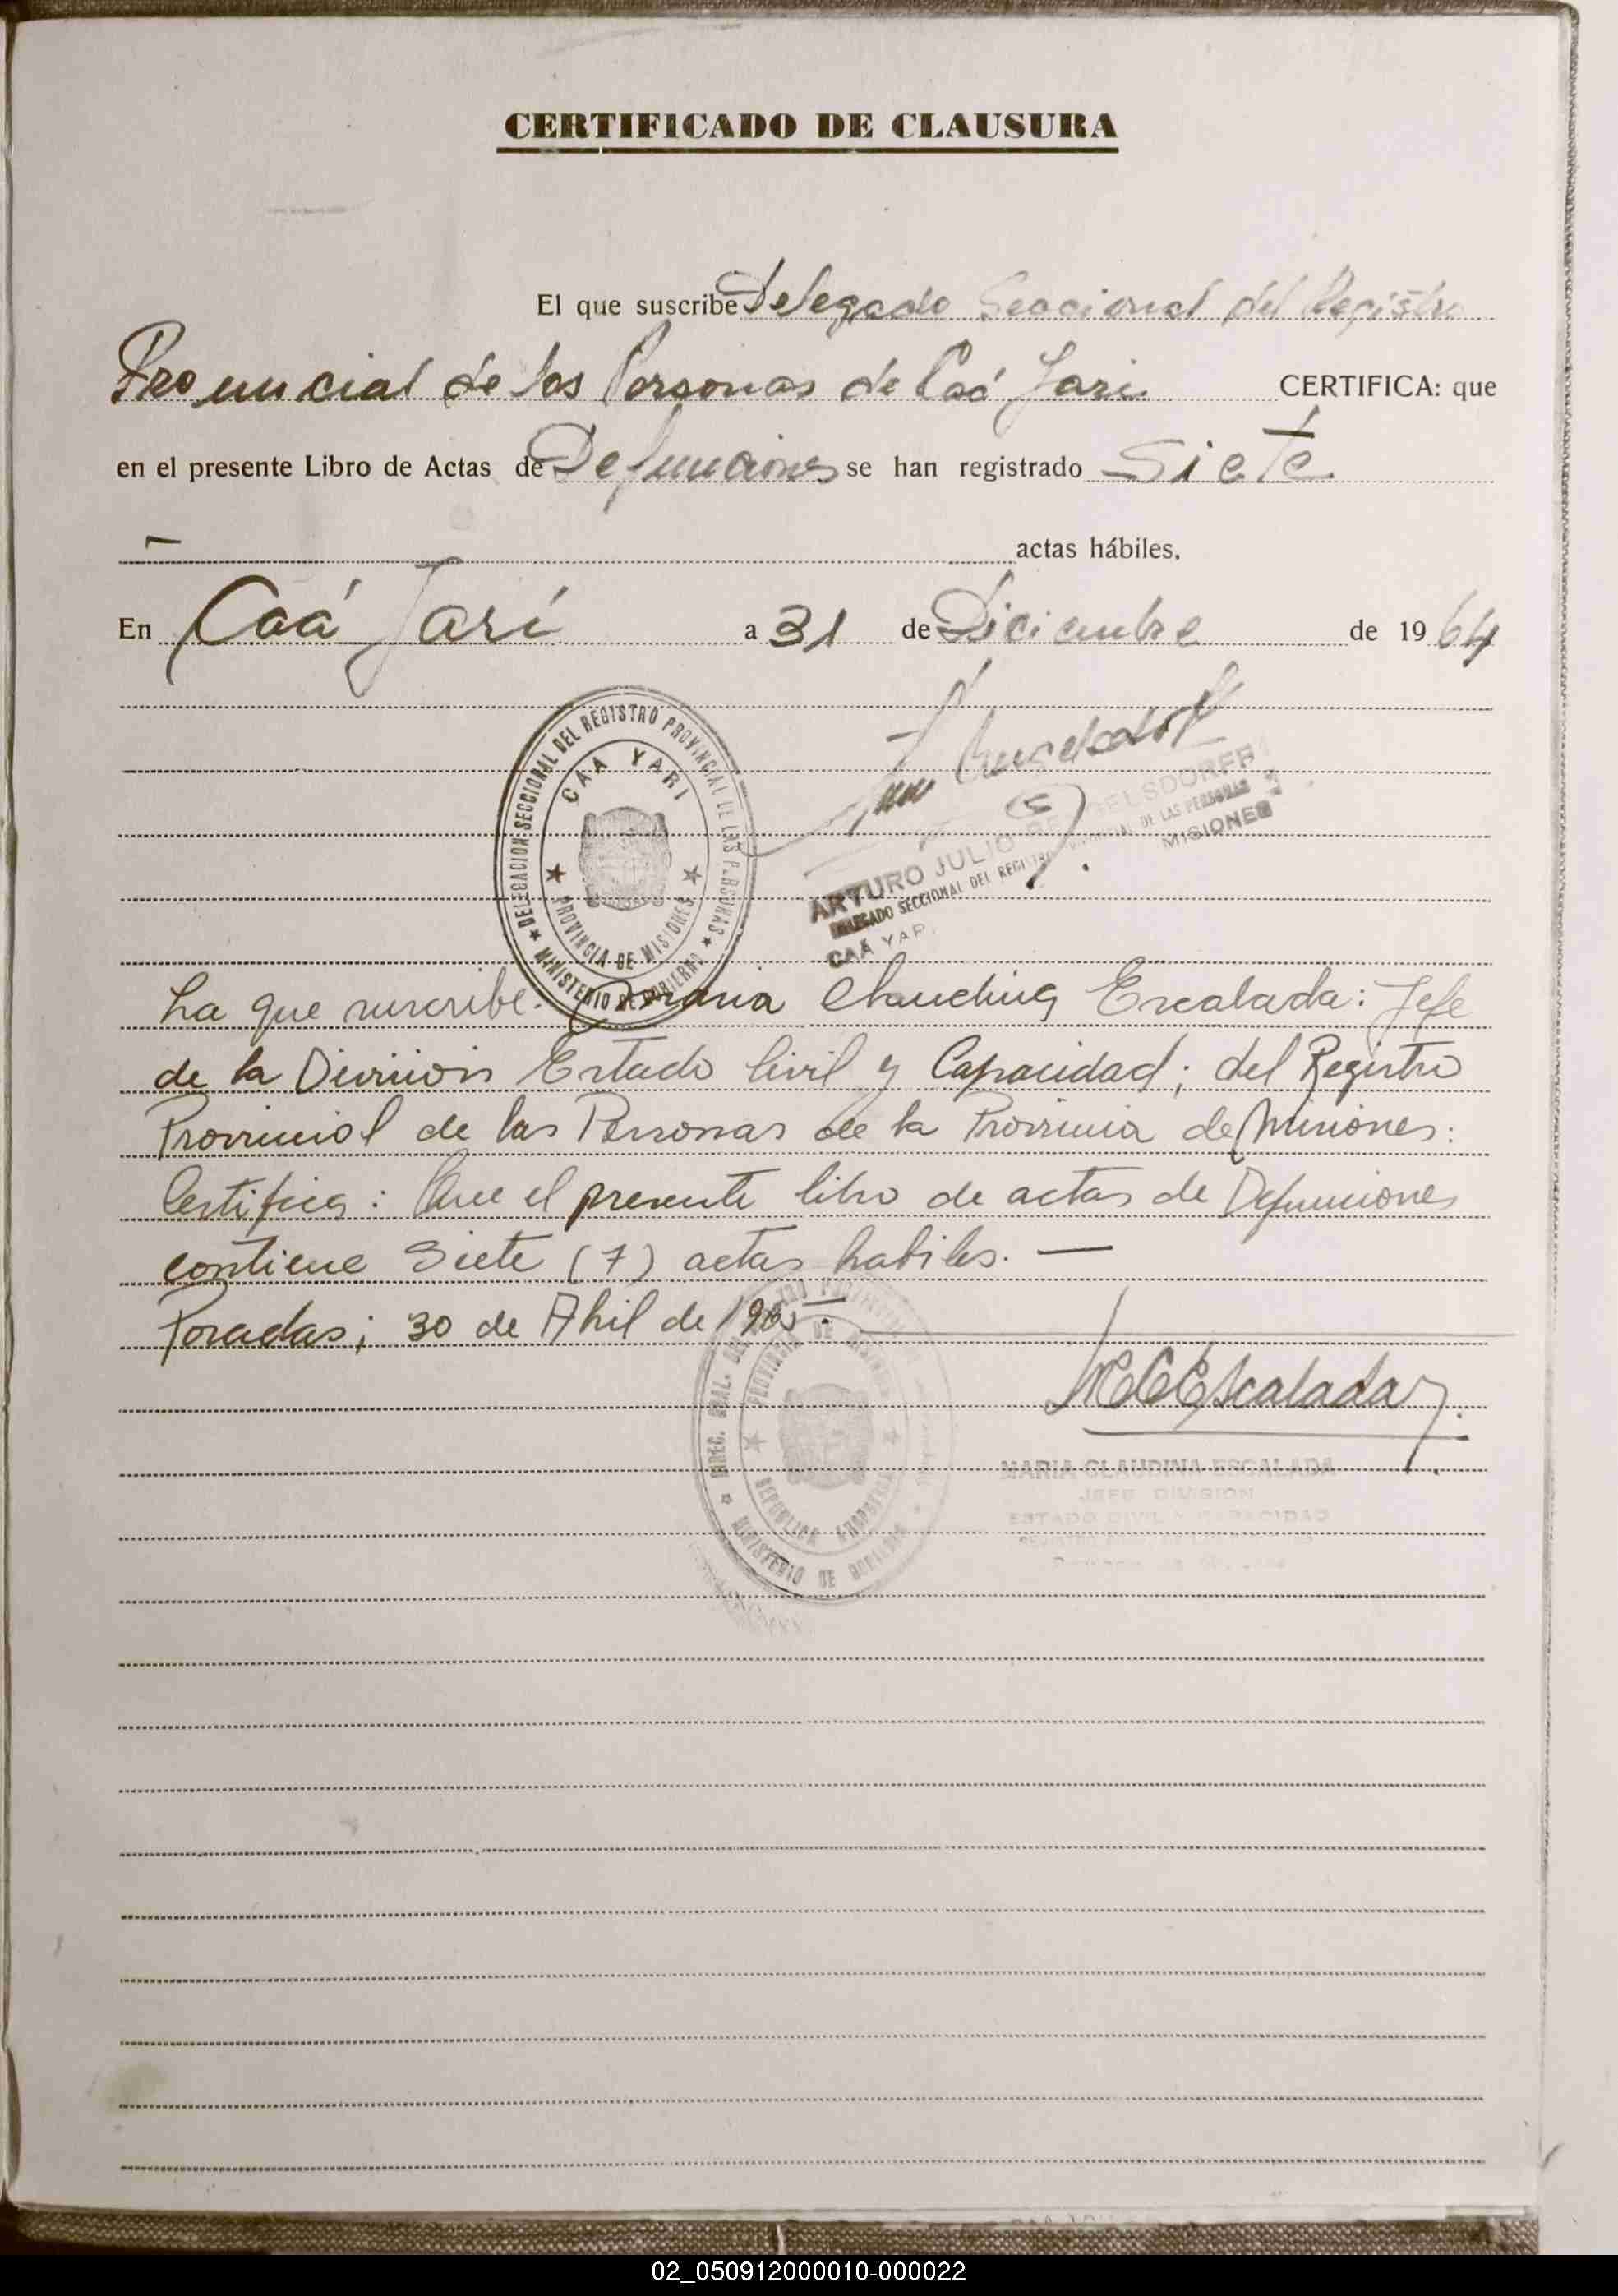 CERTIFICADO DE CLAUSURA
El que suscribe Delegado Seccional del Registro
Provincial de las Personas de Caá Jari CERTIFICA: que
en el presente Libro de Actas de Defunciones se han registrado Siete
— actas hábiles.
En Caá Jarí a 31 de Diciembre de 1964
DELEGACION SECCIONAL DEL REGISTRO PROVINCIAL DE LAS PERSONAS
MINISTERIO DE GOBIERNO
CAA YARI
PROVINCIA DE MISIONES
ARTURO JULIO
DELEGADO SECCIONAL DEL REGISTRO PROVINCIAL DE LAS PERSONAS
CAA YARI MISIONES
La que suscribe: Maria Claudina Escalada: Jefe
de la Division Estado Civil y Capacidad; del Registro
Provincial de las Personas de la Provincia de Misiones:
Certifica: Que el presente libro de actas de Defunciones
contiene Siete (7) actas habiles. —
Posadas; 30 de Abril de 1965.—
MCEscalada
MARIA CLAUDINA ESCALADA
JEFE DIVISION
ESTADO CIVIL Y CAPACIDAD
PROVINCIA DE MISIONES
REPUBLICA ARGENTINA
MINISTERIO DE GOBIERNO
02_050912000010-000022